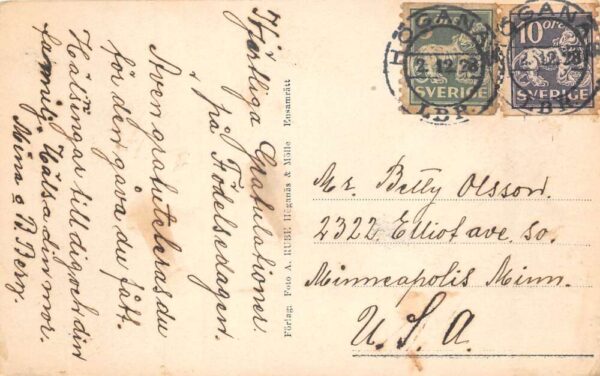 Hjertliga Gratulationer
på Födelsedagen.
Även gratuleleras du
för den gåva du fått.
Hälsingar till dig och din
familj. Hälsa din mor.
Mina & B. Berg.
Förlag: Foto A. RUBE Höganäs & Mölle Ensamrätt
HÖGANÄS
2.12.28
LBR.
SVERIGE
HÖGANÄS
10 öre
2.12.28
LBR.
SVERIGE
Mr. Betty Olsson.
2322 Elliot ave. So.
Minneapolis Minn.
U.S.A.